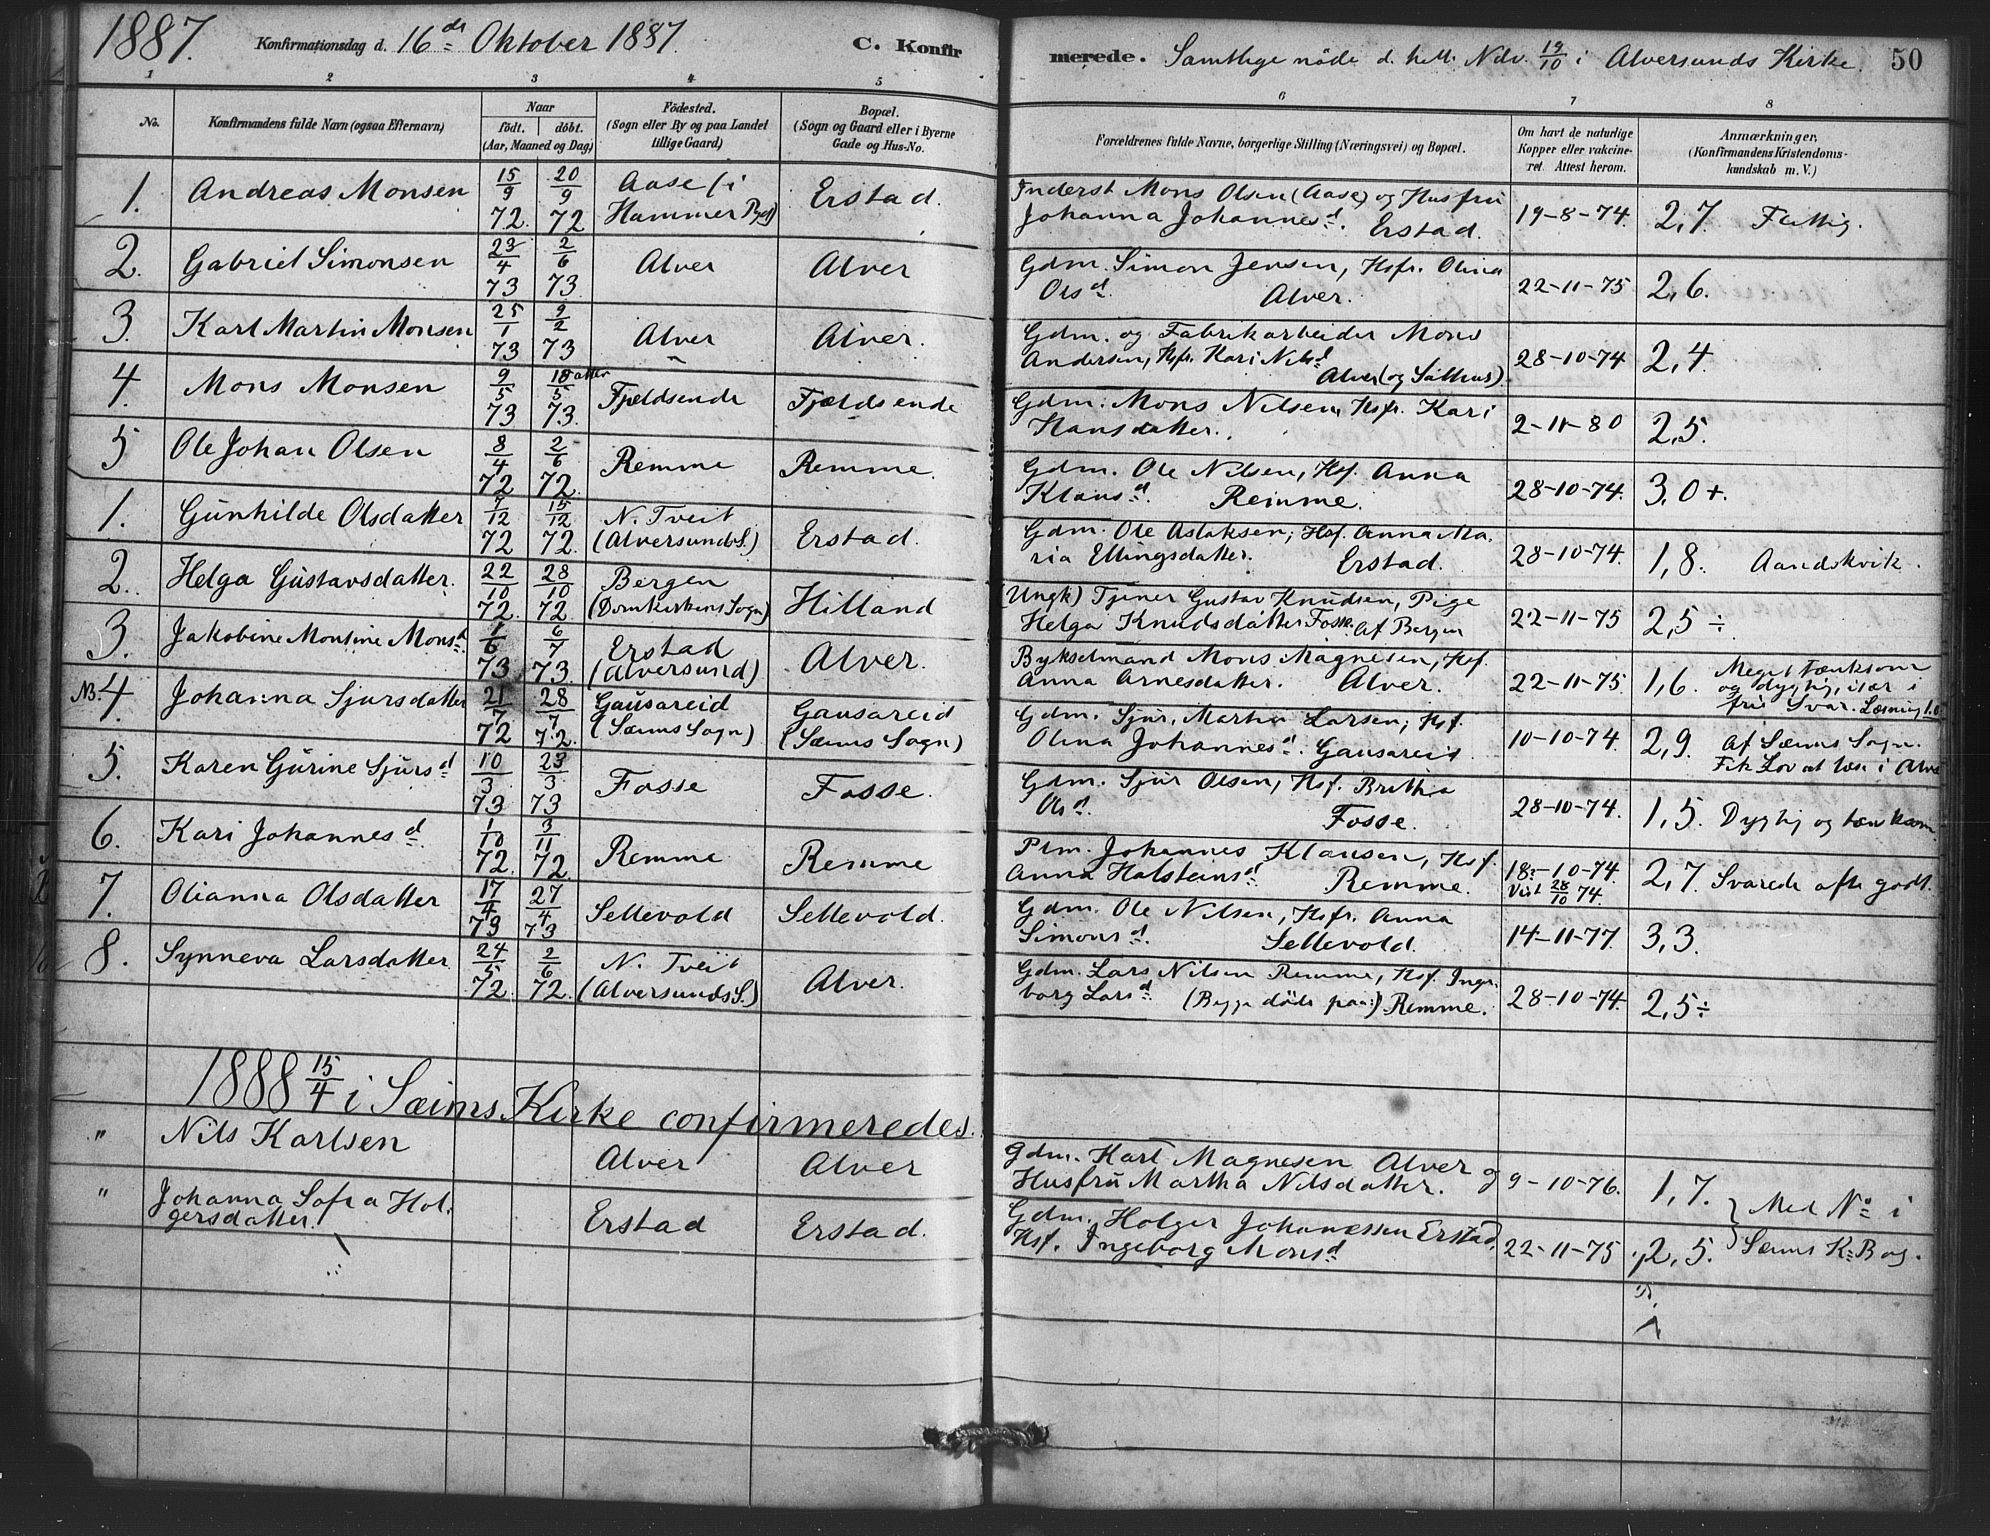 1887. Konfirmationsdag d. 16de Oktober 1887. C. Konfirmerede. Samtlige nöde d. hell. Ndv. 19/10 i Alversunds Kirke. 50
1 2 3 4 5 6 7 8
No. Konfirmandens fulde Navn (ogsaa Efternavn) Naar födt. döbt. (Aar, Maaned og Dag) Födested. (Sogn eller By og paa Landet tillige Gaard) Bopæl. (Sogn og Gaard eller i Byerne Gade og Hus-No. Forældrenes fulde Navne, borgerlige Stilling (Næringsvei) og Bopæl. Om havt de naturlige Kopper eller vakcineret. Attest herom. Anmærkninger. (Konfirmandens Kristendomskundskab m. V.)
1. Andreas Monsen 15/9 72. 20/9 72 Aase (i Hammer Pgd) Erstad. Inderst Mons Olsen (Aase) og Husfru Johanna Johannesd. Erstad. 19-8-74. 2,7. Fattig.
2. Gabriel Simonsen 23/4 73 2/6 73. Alver Alver Gdm. Simon Jensen, Hsfr. Olina Olsd. Alver. 22-11-75 2,6.
3. Karl Martin Monsen 25/1 73 9/2 73 Alver Alver. Gdm. og Fabrikarbeider Mons Andersen, Hsfr. Kari Nilsd Alver (og Salhus). 28-10-74 2,4.
4. Mons Monsen 9/5 73 18/5 73. Fjeldsende Fjældsende Gdm. Mons Nilsen, Hsfr. Kari Hansdatter. 2-11-80 2,5.
5 Ole Johan Olsen 8/4 72 2/6 72. Remme Remme. Gdm. Ole Nilsen, Hsf. Anna Klausd. Remme. 28-10-74. 3,0+.
1. Gunhilde Olsdatter 7/12 72 15/12 72. N. Tveit (Alversunds S.) Erstad. Gdm. Ole Aslaksen, Hsf. Anna Maria Ellingsdatter. Erstad. 28-10-74. 1,8. Aandskvik.
2. Helga Gustavsdatter. 22/10 72. 28/10 72 Bergen (Domkirkens Sogn) Hilland (Ungk) Tjener Gustav Knudsen, Pige Helga Knudsdatter Fosse. Af Bergen 22-11-75 2,5 ÷
3. Jakobine Monsine Monsd. 1/6 73 6/7 73. Erstad (Alversund) Alver. Bykselmand Mons Magnesen, Hsf. Anna Arnesdatter. Alver. 22-11-75 1,6. Meget tænksom og dygtig, især i fri Svar. Læsning 1.0
NB. 4. Johanna Sjursdatter 21/7 72 28/7 72. Gausareid (Sæims Sogn) Gausareid (Sæims Sogn) Gdm. Sjur Martin Larsen, Hsf. Olina Johannesd. Gausareid 10-10-74. 2,9. Af Sæims Sogn. Fik Lov at læse i Alve
5. Karen Gurine Sjursd 10/3 73 23/3 73 Fosse Fosse. Gdm. Sjur Olsen, Hsf. Britha Olsd Fosse. 28-10-74. 1,5. Dygtig og tænksom
6. Kari Johannesd. 1/10 72. 3/11 72. Remme Remme Plm. Johannes Klausen, Hsf. Anna Halsteinsd Remme. 18-10-74. Vist 28/10 74. 2,7. Svarede ofte godt.
7. Olianna Olsdatter 17/4 73 27/4 73 Sellevold Sellevold. Gdm. Ole Nilsen, Hsfr. Anna Simonsd. Sellevold. 14-11-77. 3,3.
8. Synneva Larsdatter 24/5 72. 2/6 72. N. Tveit (Alversunds S.) Alver. Gdm. Lars Nilsen Remme, Hsf. Ingeborg Larsd (Begge döde paa) Remme. 28-10-74. 2,5÷
1888 15/4 i Sæims Kirke confirmeredes.
" Nils Karlsen Alver Alver Gdm. Karl Magnesen Alver og Husfru Martha Nilsdatter. 9-10-76. 1,7.
" Johanna Sofia Holgersdatter. Erstad Erstad. Gdm. Holger Johannessen Erstad, Hsf. Ingeborg Monsd 22-11-75 2,5. } Med No i Sæims K. Bog.